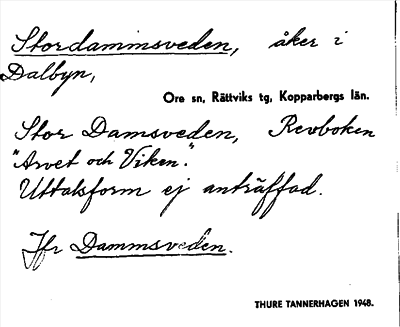 Stordammsveden, åker i
Dalbyn,
Ore sn, Rättviks tg, Kopparbergs län.
Stor Damsveden, Revboken
"Arvet och Viken".
Uttalsform ej anträffad.
Jfr Dammsveden.
THURE TANNERHAGEN 1948.